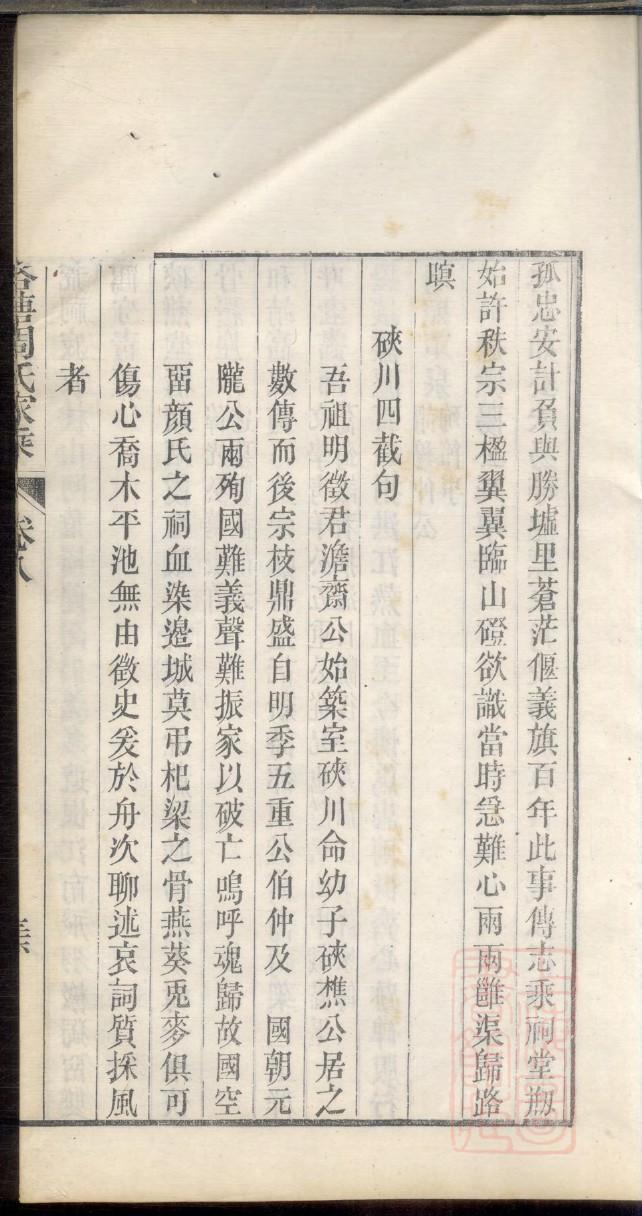 孤忠安計負與勝墟里蒼茫偃義旗百年此事傳志乘祠堂剏
始許秩宗三楹翼翼臨山磴欲識當時急難心雨雨雝渠歸路
瞑
硤川四截句
吾祖明徵君澹齋公始築室硤川命幼子硤樵公居之
數傳而後宗枝鼎盛自明季五重公伯仲及　國朝元
隴公兩殉國難義聲難振家以破亡嗚呼魂歸故國空
畱顏氏之祠血染邊城莫弔杞梁之骨燕葵兎麥俱可
傷心喬木平池無由徵史爰於舟次聊述哀詞質採風
者
周氏家乘
卷八